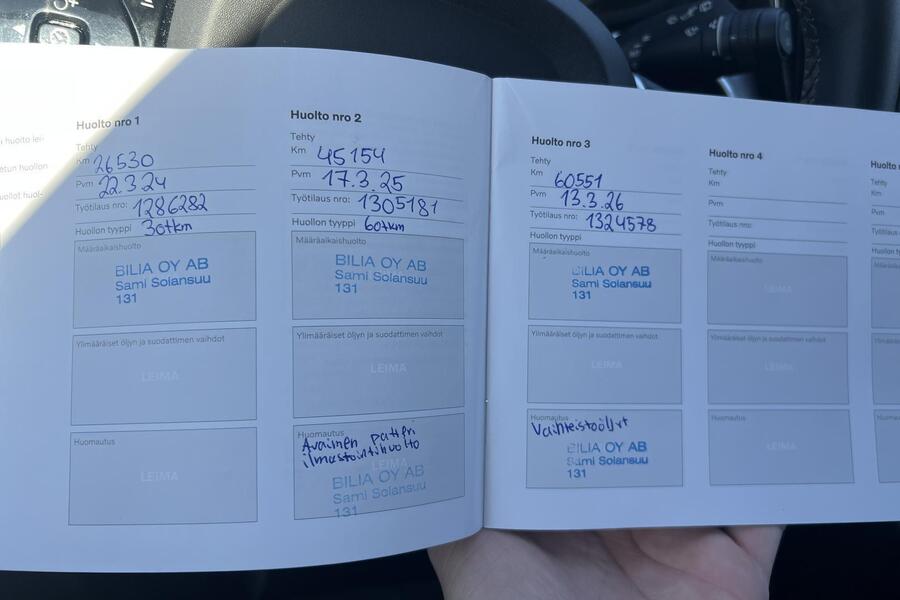 n huolto lei
etun huollon
vallot huol-
Huolto nro 1
Tehty
Km 26530
Pvm 22.3.24
Työtilaus nro: 1286282
Huollon tyyppi 30tkm
Määräaikaishuolto
BILIA OY AB
Sami Solansuu
131
Ylimääräiset öljyn ja suodattimen vaihdot
LEIMA
Huomautus
LEIMA
Huolto nro 2
Tehty
Km 45154
Pvm 17.3.25
Työtilaus nro: 1305181
Huollon tyyppi 60tkm
Määräaikaishuolto
BILIA OY AB
Sami Solansuu
131
Ylimääräiset öljyn ja suodattimen vaihdot
LEIMA
Huomautus
Avaimen patteri
ilmastointihuolto
LEIMA
BILIA OY AB
Sami Solansuu
131
Huolto nro 3
Tehty
Km 60551
Pvm 13.3.26
Työtilaus nro: 1324578
Huollon tyyppi
Määräaikaishuolto
BILIA OY AB
Sami Solansuu
131
Ylimääräiset öljyn ja suodattimen vaihdot
LEIMA
Huomautus
Vaihteistoöljyt
BILIA OY AB
Sami Solansuu
131
Huolto nro 4
Tehty
Km
Pvm
Työtilaus nro:
Huollon tyyppi
Määräaikaishuolto
LEIMA
Ylimääräiset öljyn ja suodattimen vaihdot
LEIMA
Huomautus
LEIMA
Huolto n
Tehty
Km
Pvm
Työtilaus
Huollon t
Määräaika
Ylimääräi
Huomaut